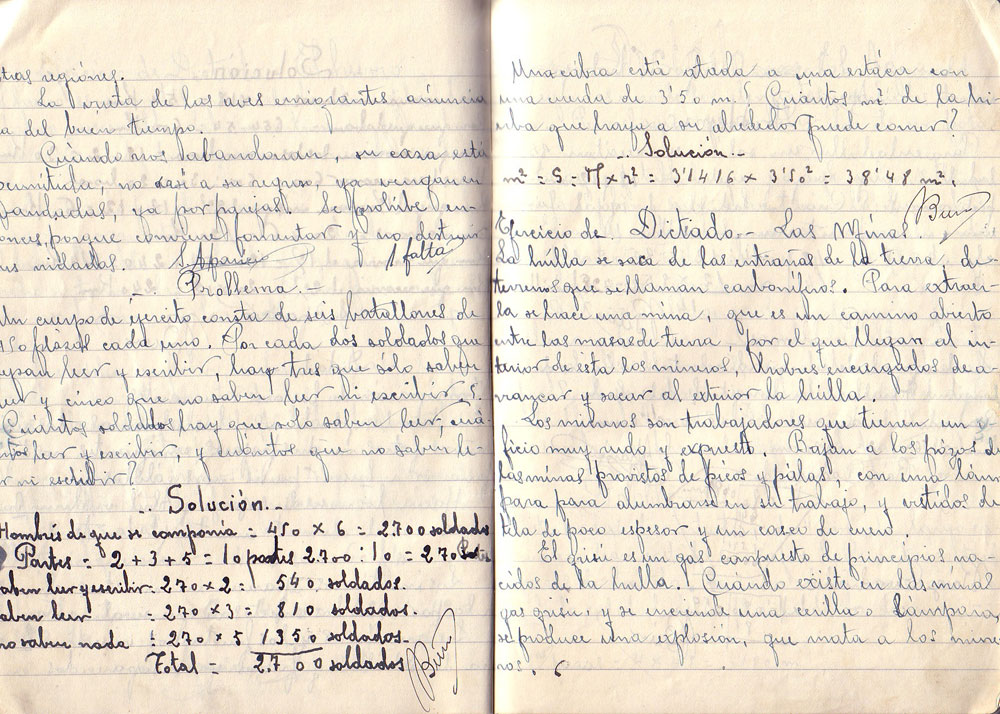 tras regiónes.
La vuelta de las aves emigrantes anuncia
a del buén tiempo.
Cuándo nos abandonan, su casa está
no casi a su regreso, ya vengan en
bandadas, ya por parejas. Se prohibe en-
onces, porque conviene fomentar y no destruir
us nidadas. 1 falta
... Problema. -
Un cuerpo de ejercito consta de seis batallones de
450 plazas cada uno. Por cada dos soldados que
sepan leer y escribir, hay tres que sólo saben
leer y cinco que no saben leer ni escribir. ¿
Cuántos soldados hay que solo saben leer, cuá-
ntos leer y escribir, y cuántos que no saben le-
er ni escribir?
... Solución...
Hombrés de que se componia = 450 x 6 = 2.700 soldados
Partes = 2 + 3 + 5 = 10 partes 2.700 : 10 = 270
aben leer y escribir = 270 x 2 = 540 soldados.
aben leer = 270 x 3 = 810 soldados.
no saben nada = 270 x 5 1350 soldados-
Total = 2.700 soldados
Bien
Una cabra está atada a una estáca con
una cuerda de 3'50 m. ¿Cuántos m² de la hi
erba que haya a su alrededor puede comer?
... Solución...
m² = S = π x r² = 3'1416 x 3'50² = 38'48 m².
Bien
Ejercicio de Dictado - Las Minas
La húlla se saca de las entrañas de la tierra, de
terrenos que se llaman carboníferos. Para extraer-
la se hace una mina, que es un camino abierto
entre las masas de tierra, por el que llegan al in-
terior de esta los mineros, hombres encargados de a-
rrancar y sacar al exterior la húlla.
Los mineros son trabajadores que tienen un o-
ficio muy rudo y expuesto. Bajan a los pózos de
las minas provistos de picos y pálas, con una lám
para para alumbrarse en su trabajo, y vestidos de
tela de poco espesor y un casco de cuero.
El grisu es un gás compuesto de principios na-
cidos de la hulla. Cuando existe en las minas
gas grisu, y se enciende una cerilla o lampara
se produce una explosión, que mata a los mine-
ros. 6